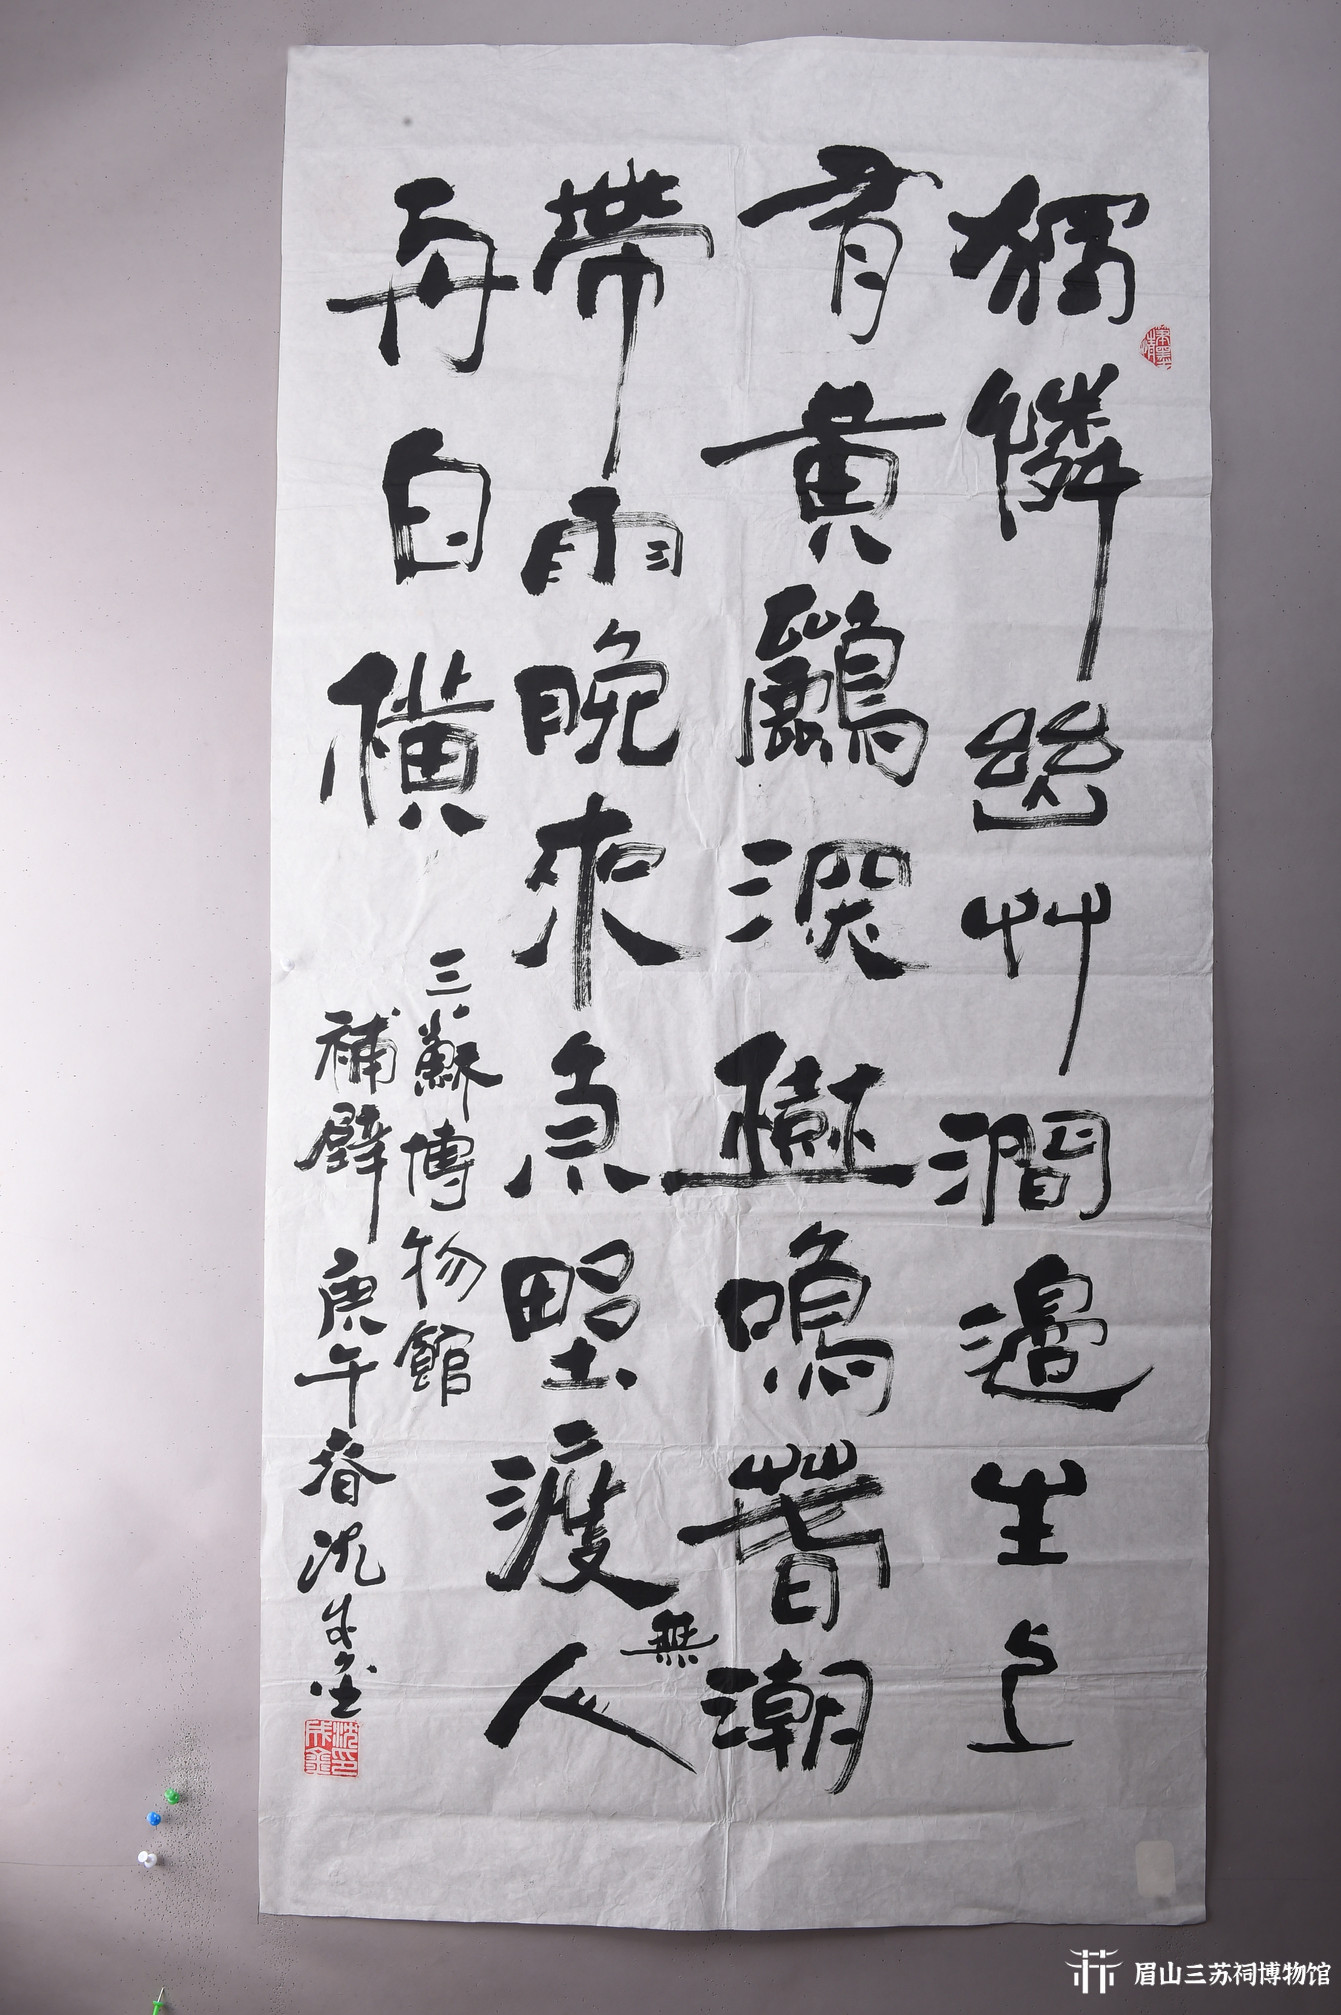 獨憐幽艸澗邊生上
有黃鸝深樹鳴春潮
帶雨晚來急野渡無人
舟自橫
三蘇博物館
補壁庚午春沈
眉山三苏祠博物馆